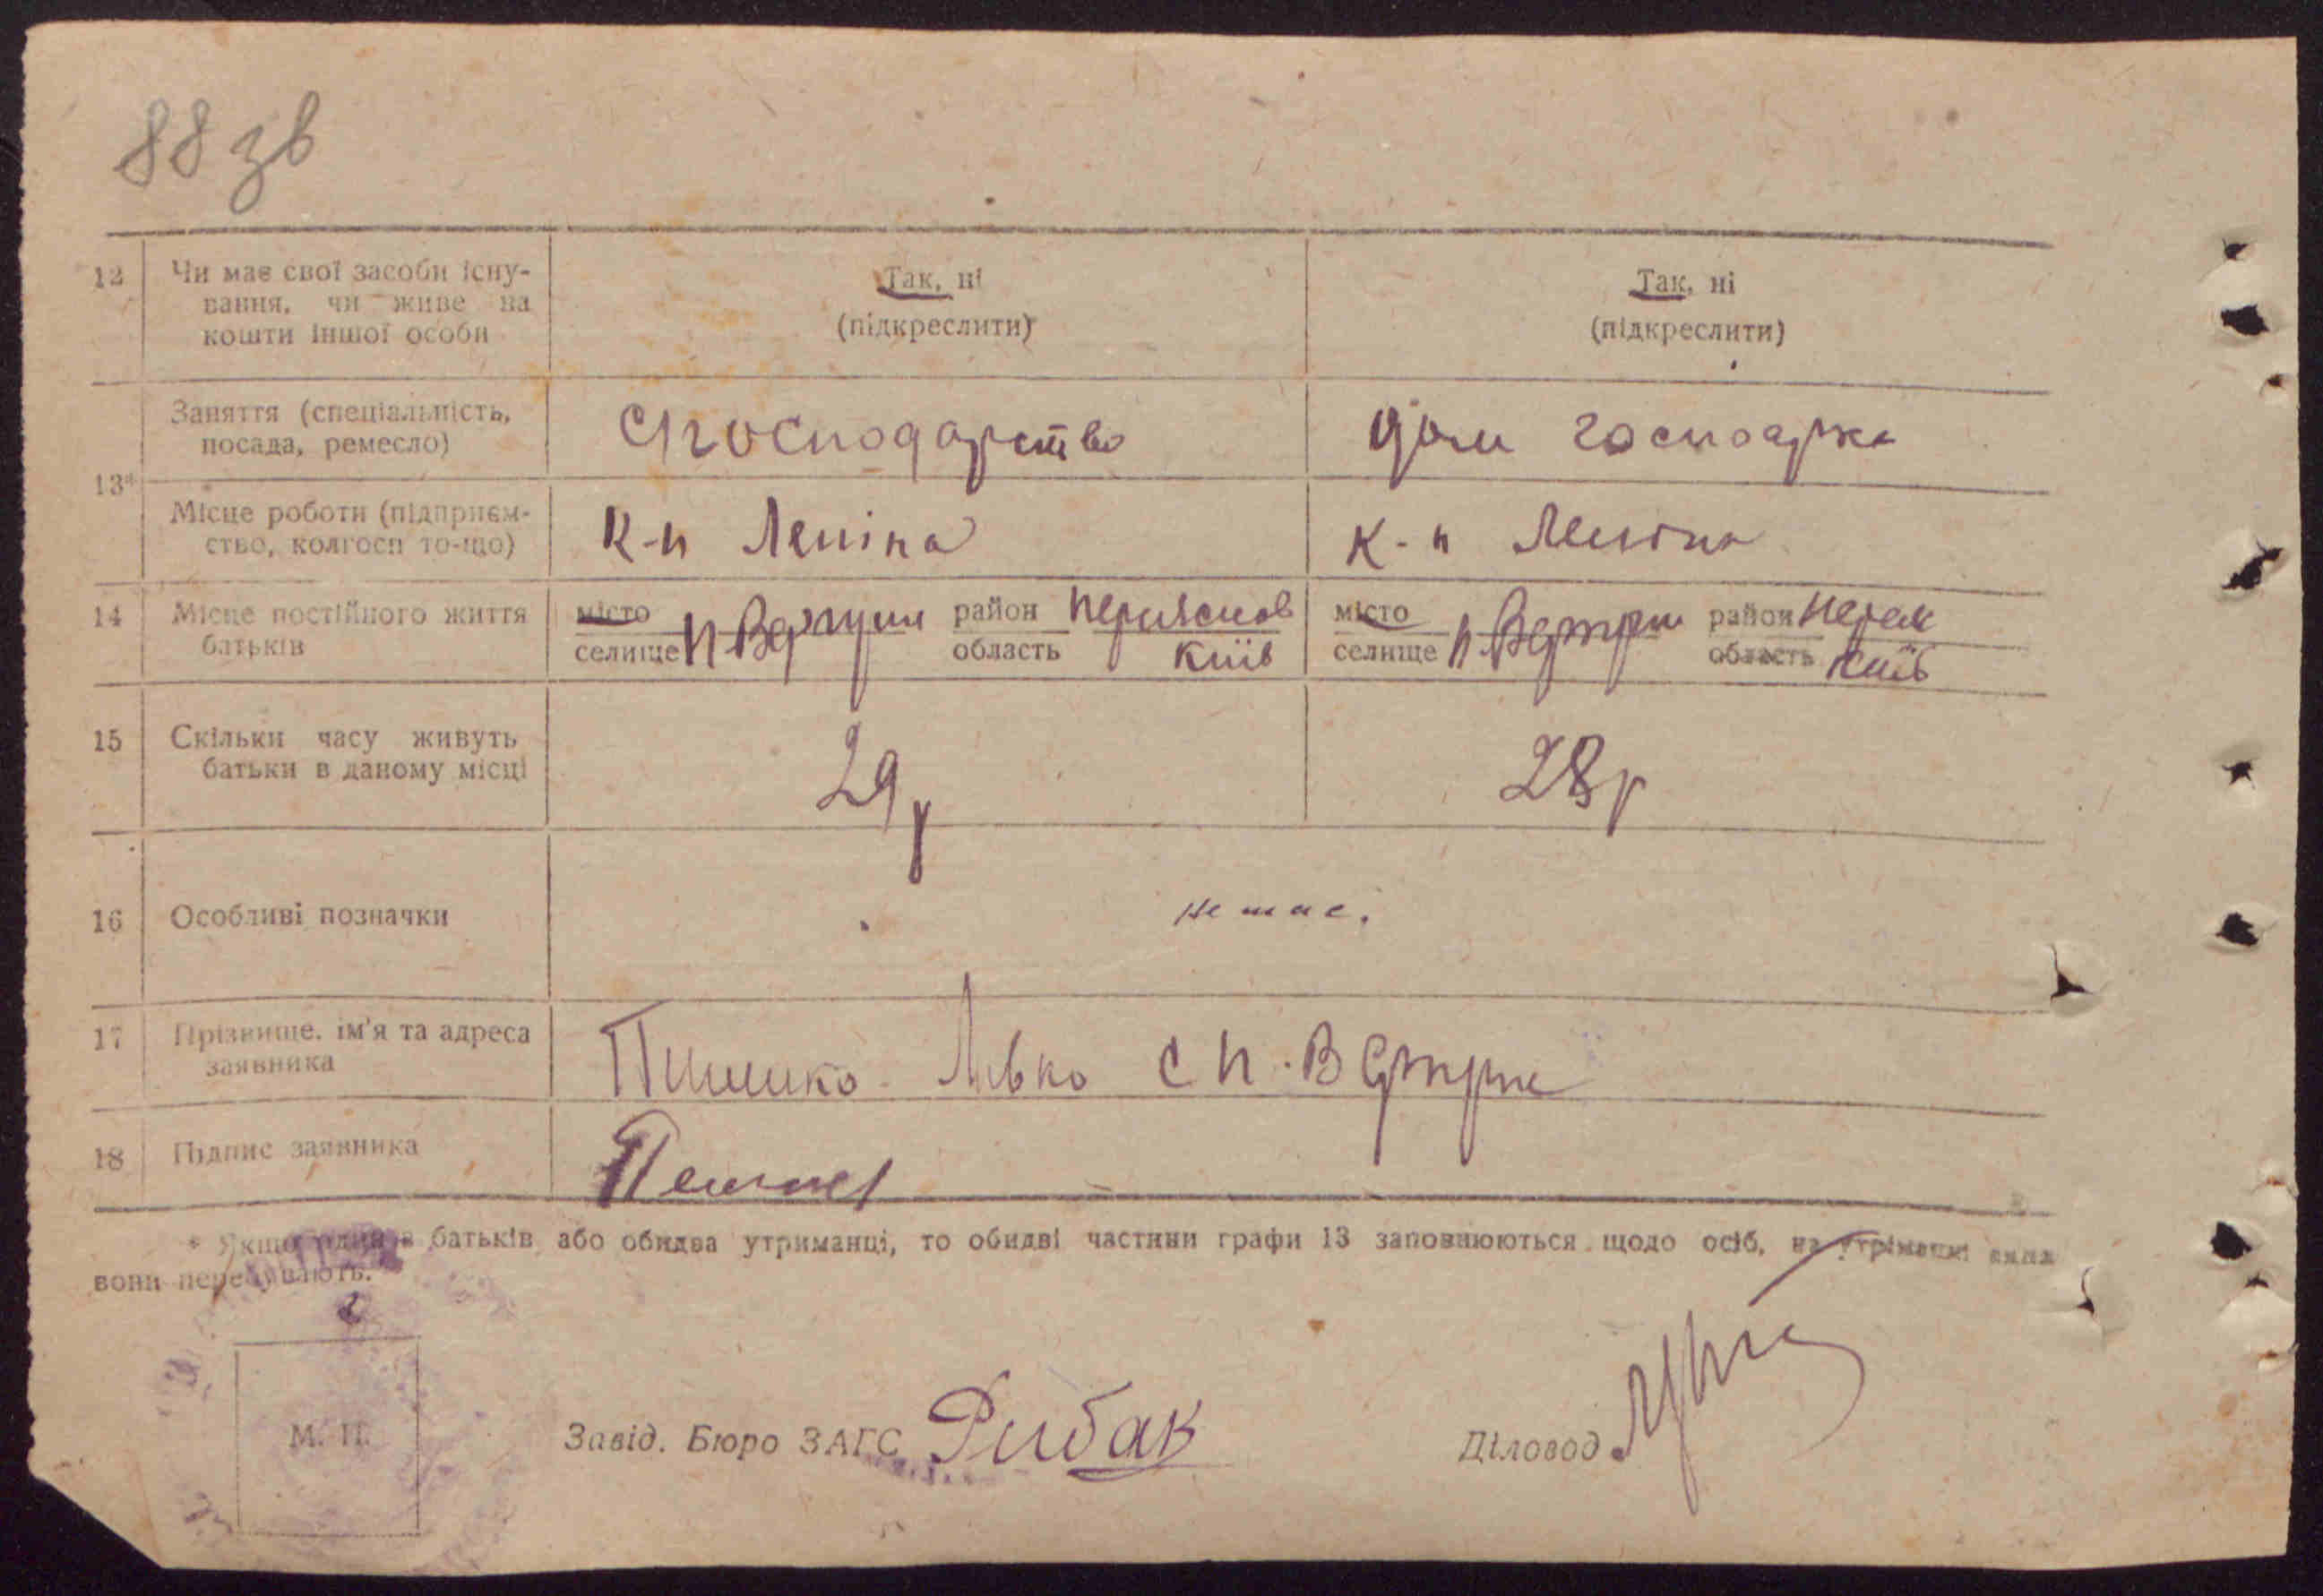 88 зв
12 Чи має свої засоби існу- Так, ні Так, ні
вання, чи живе на (підкреслити) (підкреслити)
кошти іншої особи
13* Заняття (спеціальність, посада, ремесло) Сгосподарство дом господрка
Місце роботи (підприєм-
ство, колгосп то-що) к-п Леніна к-п Леніна
14 Місце постійного життя місто район місто район
батьків селище область Київ селище область Київ
15 Скільки часу живуть 29р 28р
батьки в даному місці
16 Особливі позначки не має.
17 Прізвище, ім'я та адреса
заявника Левко с
18 Підпис заявника
* Якщо один з батьків або обидва утриманці, то обидві частини графи 13 заповнюються щодо осіб, на утриманні яких
вони перебувають.
М. П. Завід. Бюро ЗАГС Рибак Діловод